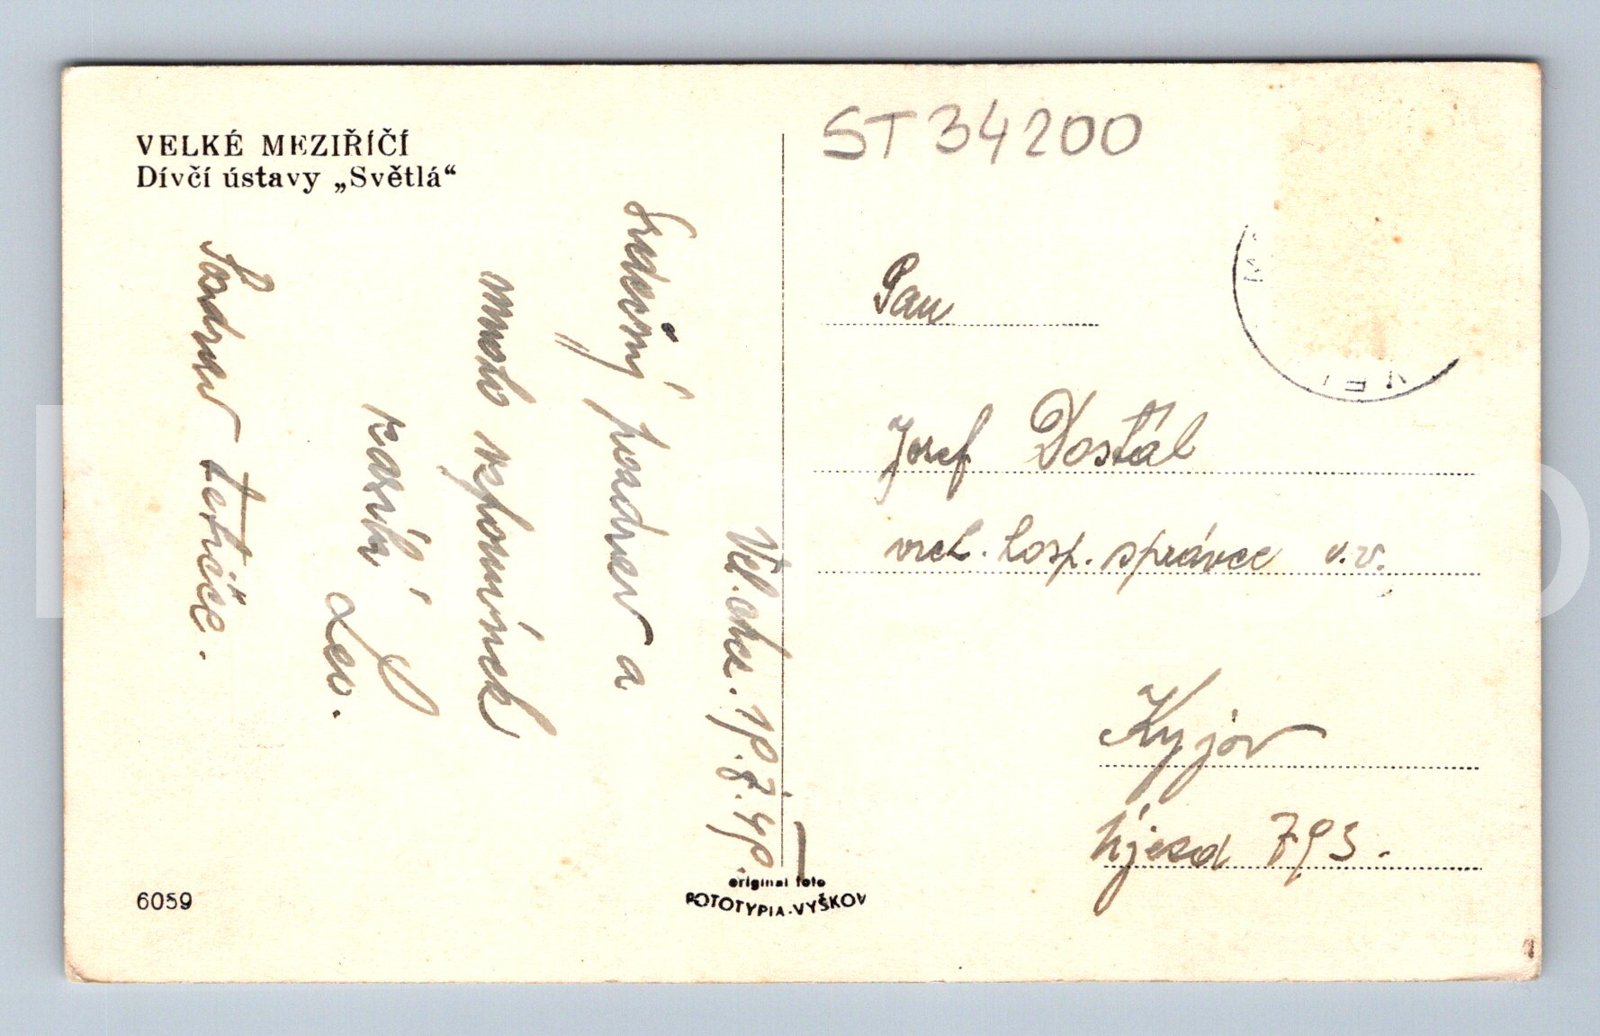 VELKÉ MEZIŘÍČÍ
Dívčí ústavy „Světlá“
ST 34200
Srdečný pozdrav a
mnoho vzpomínek
zasílá
Leo.
Pozdrav tetičce.
Pan
Josef Dostál
vrch. hosp. správce v.v.
Kyjov
Újezd 793.
6059
original foto
FOTOTYPIA-VYŠKOV